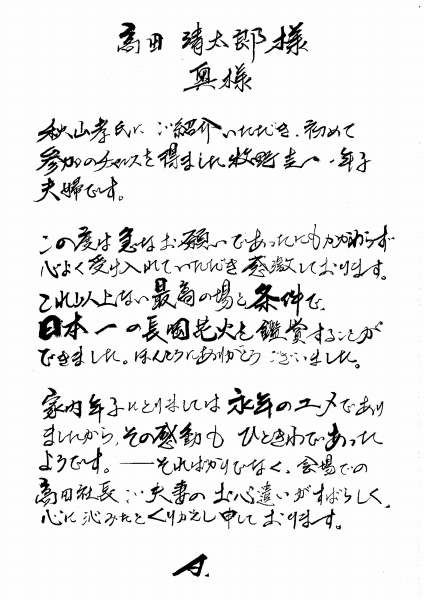 高田 清太郎 様
奥様
秋山孝氏に ご紹介いただき、初めて
参加のチャンスを得ました牧野圭一・年子
夫婦です。
この度は急なお願いであったにもかかわらず
心よく受け入れていただき感激しております。
これ以上ない最高の場と条件で、
日本一の長岡花火を鑑賞することが
できました。ほんとうにありがとうございました。
家内年子にとりましては永年のユメであり
ましたから、その感動も ひときわであった
ようです。——そればかりでなく、会場での
高田社長ご夫妻のお心遣いがすばらしく、
心に沁みたとくりかえし申しております。